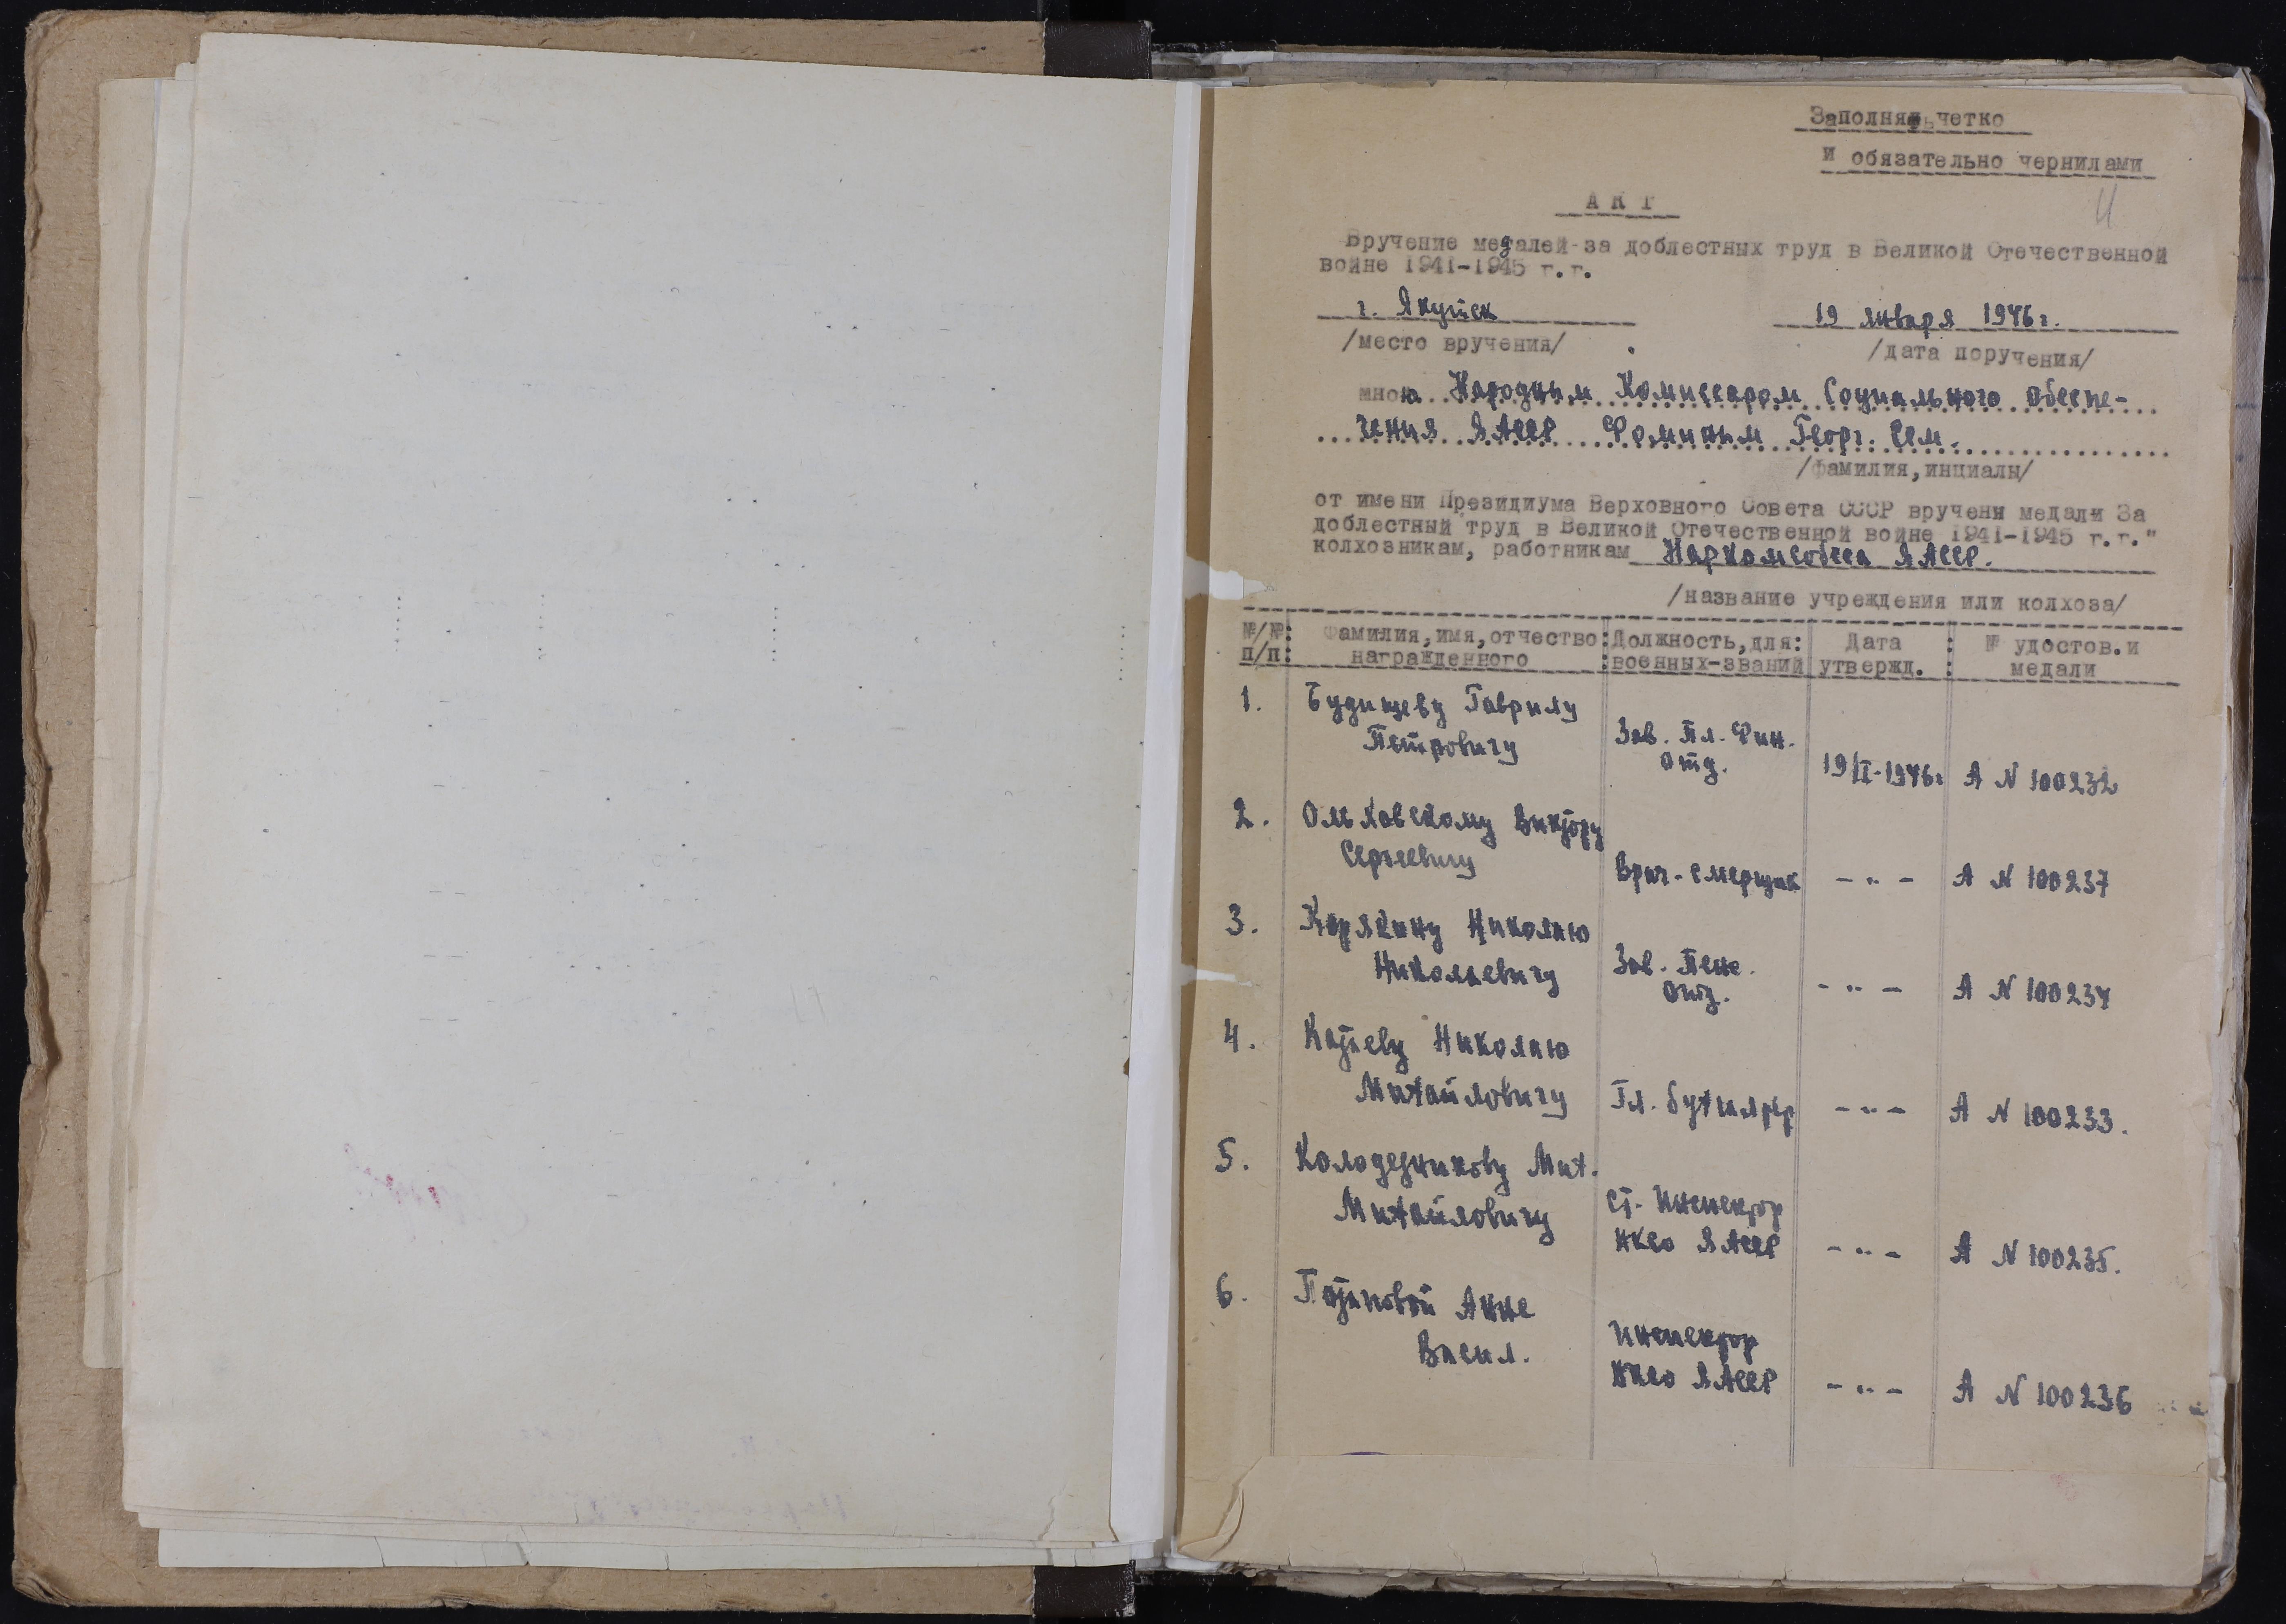 Заполнять четко
и обязательно чернилами
11
АКТ
Вручение медалей за доблестных труд в Великой Отечественной
войне 1941-1945 г.г.
г. Якутск 19 января 1946 г.
/место вручения/ /дата поручения/
мною Народным Комиссаром Социального обеспе-
чения ЯАССР Фоминым Георг. Сем.
/фамилия,инциалы/
от имени Президиума Верховного Совета СССР вручены медали За
доблестный труд в Великой Отечественной войне 1941-1945 г.г."
колхозникам, работникам Наркомсобеса ЯАССР.
/название учреждения или колхоза/
№/№: Фамилия,имя,отчество:Должность,для: Дата : № удостов.и
п/п: награжденного :военных-званий утвержд. : медали
1. Будищеву Гаврилу
Петровичу Зав. Пл. Фин.
отд. 19/I-1946г А N 100232
2. Ольховскому Виктору
Сергеевичу Врач-Экспер -"- А N 100237
3. Корякину Николаю
Николаевичу Зав. Пенс.
отд. -"- А N 100234
4. Катаеву Николаю
Михайловичу Гл. бухгалтер -"- А N 100233.
5. Колодезникову Мих.
Михайловичу Ст. Инспектор
НКСО ЯАССР -"- А N 100235.
6. Потаповой Анне
Васил. Инспектор
НКСО ЯАССР -"- А N 100236